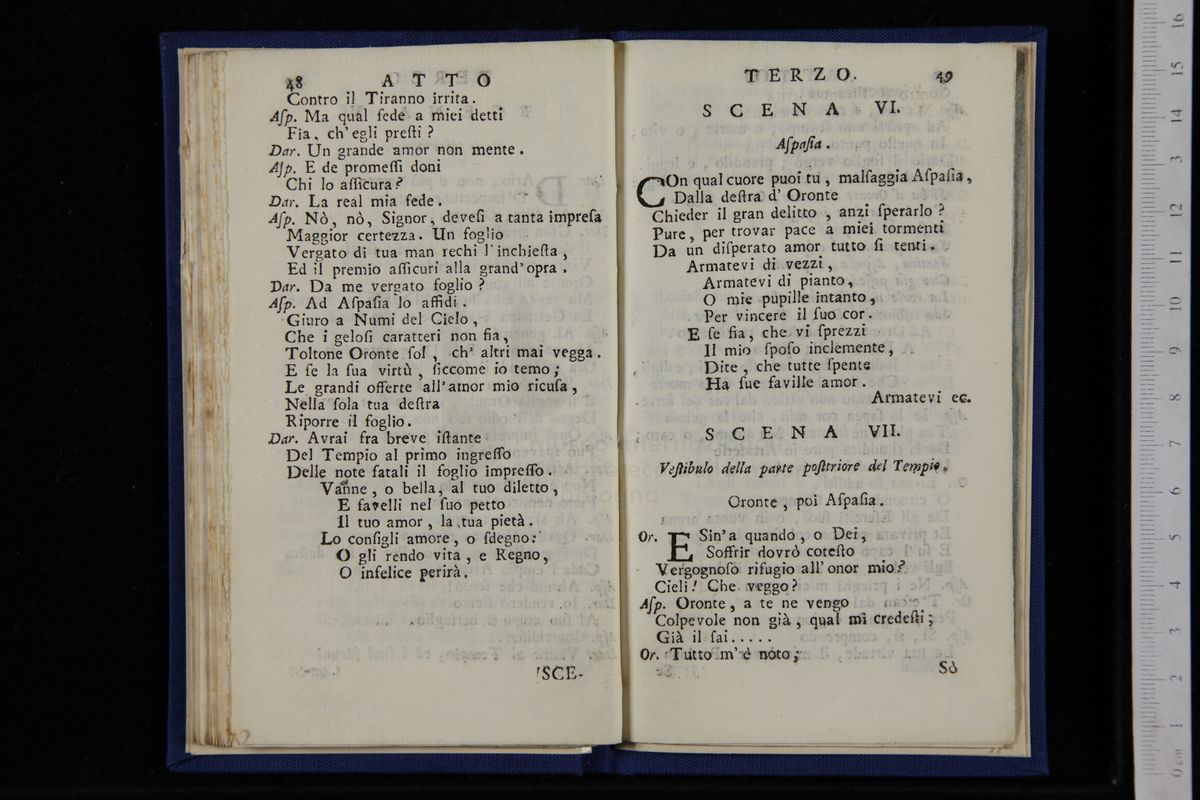 48 ATTO
Contro il Tiranno irrita.
Aſp. Ma qual fede a miei detti
Fia, ch'egli preſti?
Dar. Un grande amor non mente.
Aſp. E de promeſſi doni
Chi lo aſſicura?
Dar. La real mia fede.
Aſp. Nò, nò, Signor, deveſi a tanta impreſa
Maggior certezza. Un foglio
Vergato di tua man rechi l'inchieſta,
Ed il premio aſſicuri alla grand'opra.
Dar. Da me vergato foglio?
Aſp. Ad Aſpaſia lo affidi.
Giuro a Numi del Cielo,
Che i geloſi caratteri non fia,
Toltone Oronte ſol, ch' altri mai vegga.
E ſe la ſua virtù, ſiccome io temo;
Le grandi offerte all'amor mio ricuſa,
Nella ſola tua deſtra
Riporre il foglio.
Dar. Avrai fra breve iſtante
Del Tempio al primo ingreſſo
Delle note fatali il foglio impreſſo.
Vanne, o bella, al tuo diletto,
E favelli nel ſuo petto
Il tuo amor, la tua pietà.
Lo conſigli amore, o ſdegno:
O gli rendo vita, e Regno,
O infelice perirà.
SCE-
TERZO. 49
SCENA VI.
Aſpaſia.
COn qual cuore puoi tu, malſaggia Aſpaſia,
Dalla deſtra d' Oronte
Chieder il gran delitto, anzi ſperarlo?
Pure, per trovar pace a miei tormenti
Da un diſperato amor tutto ſi tenti.
Armatevi di vezzi,
Armatevi di pianto,
O mie pupille intanto,
Per vincere il ſuo cor.
E ſe fia, che vi ſprezzi
Il mio ſpoſo inclemente,
Dite, che tutte ſpente
Ha ſue faville amor.
Armatevi ec.
SCENA VII.
Veſtibulo della parte poſtriore del Tempio.
Oronte, poi Aſpaſia.
Or. E Sin'a quando, o Dei,
Soffrir dovrò coteſto
Vergognoſo rifugio all'onor mio?
Cieli! Che veggo?
Aſp. Oronte, a te ne vengo
Colpevole non già, qual mi credeſti;
Già il ſai.....
Or. Tutto m'è noto;
Sò